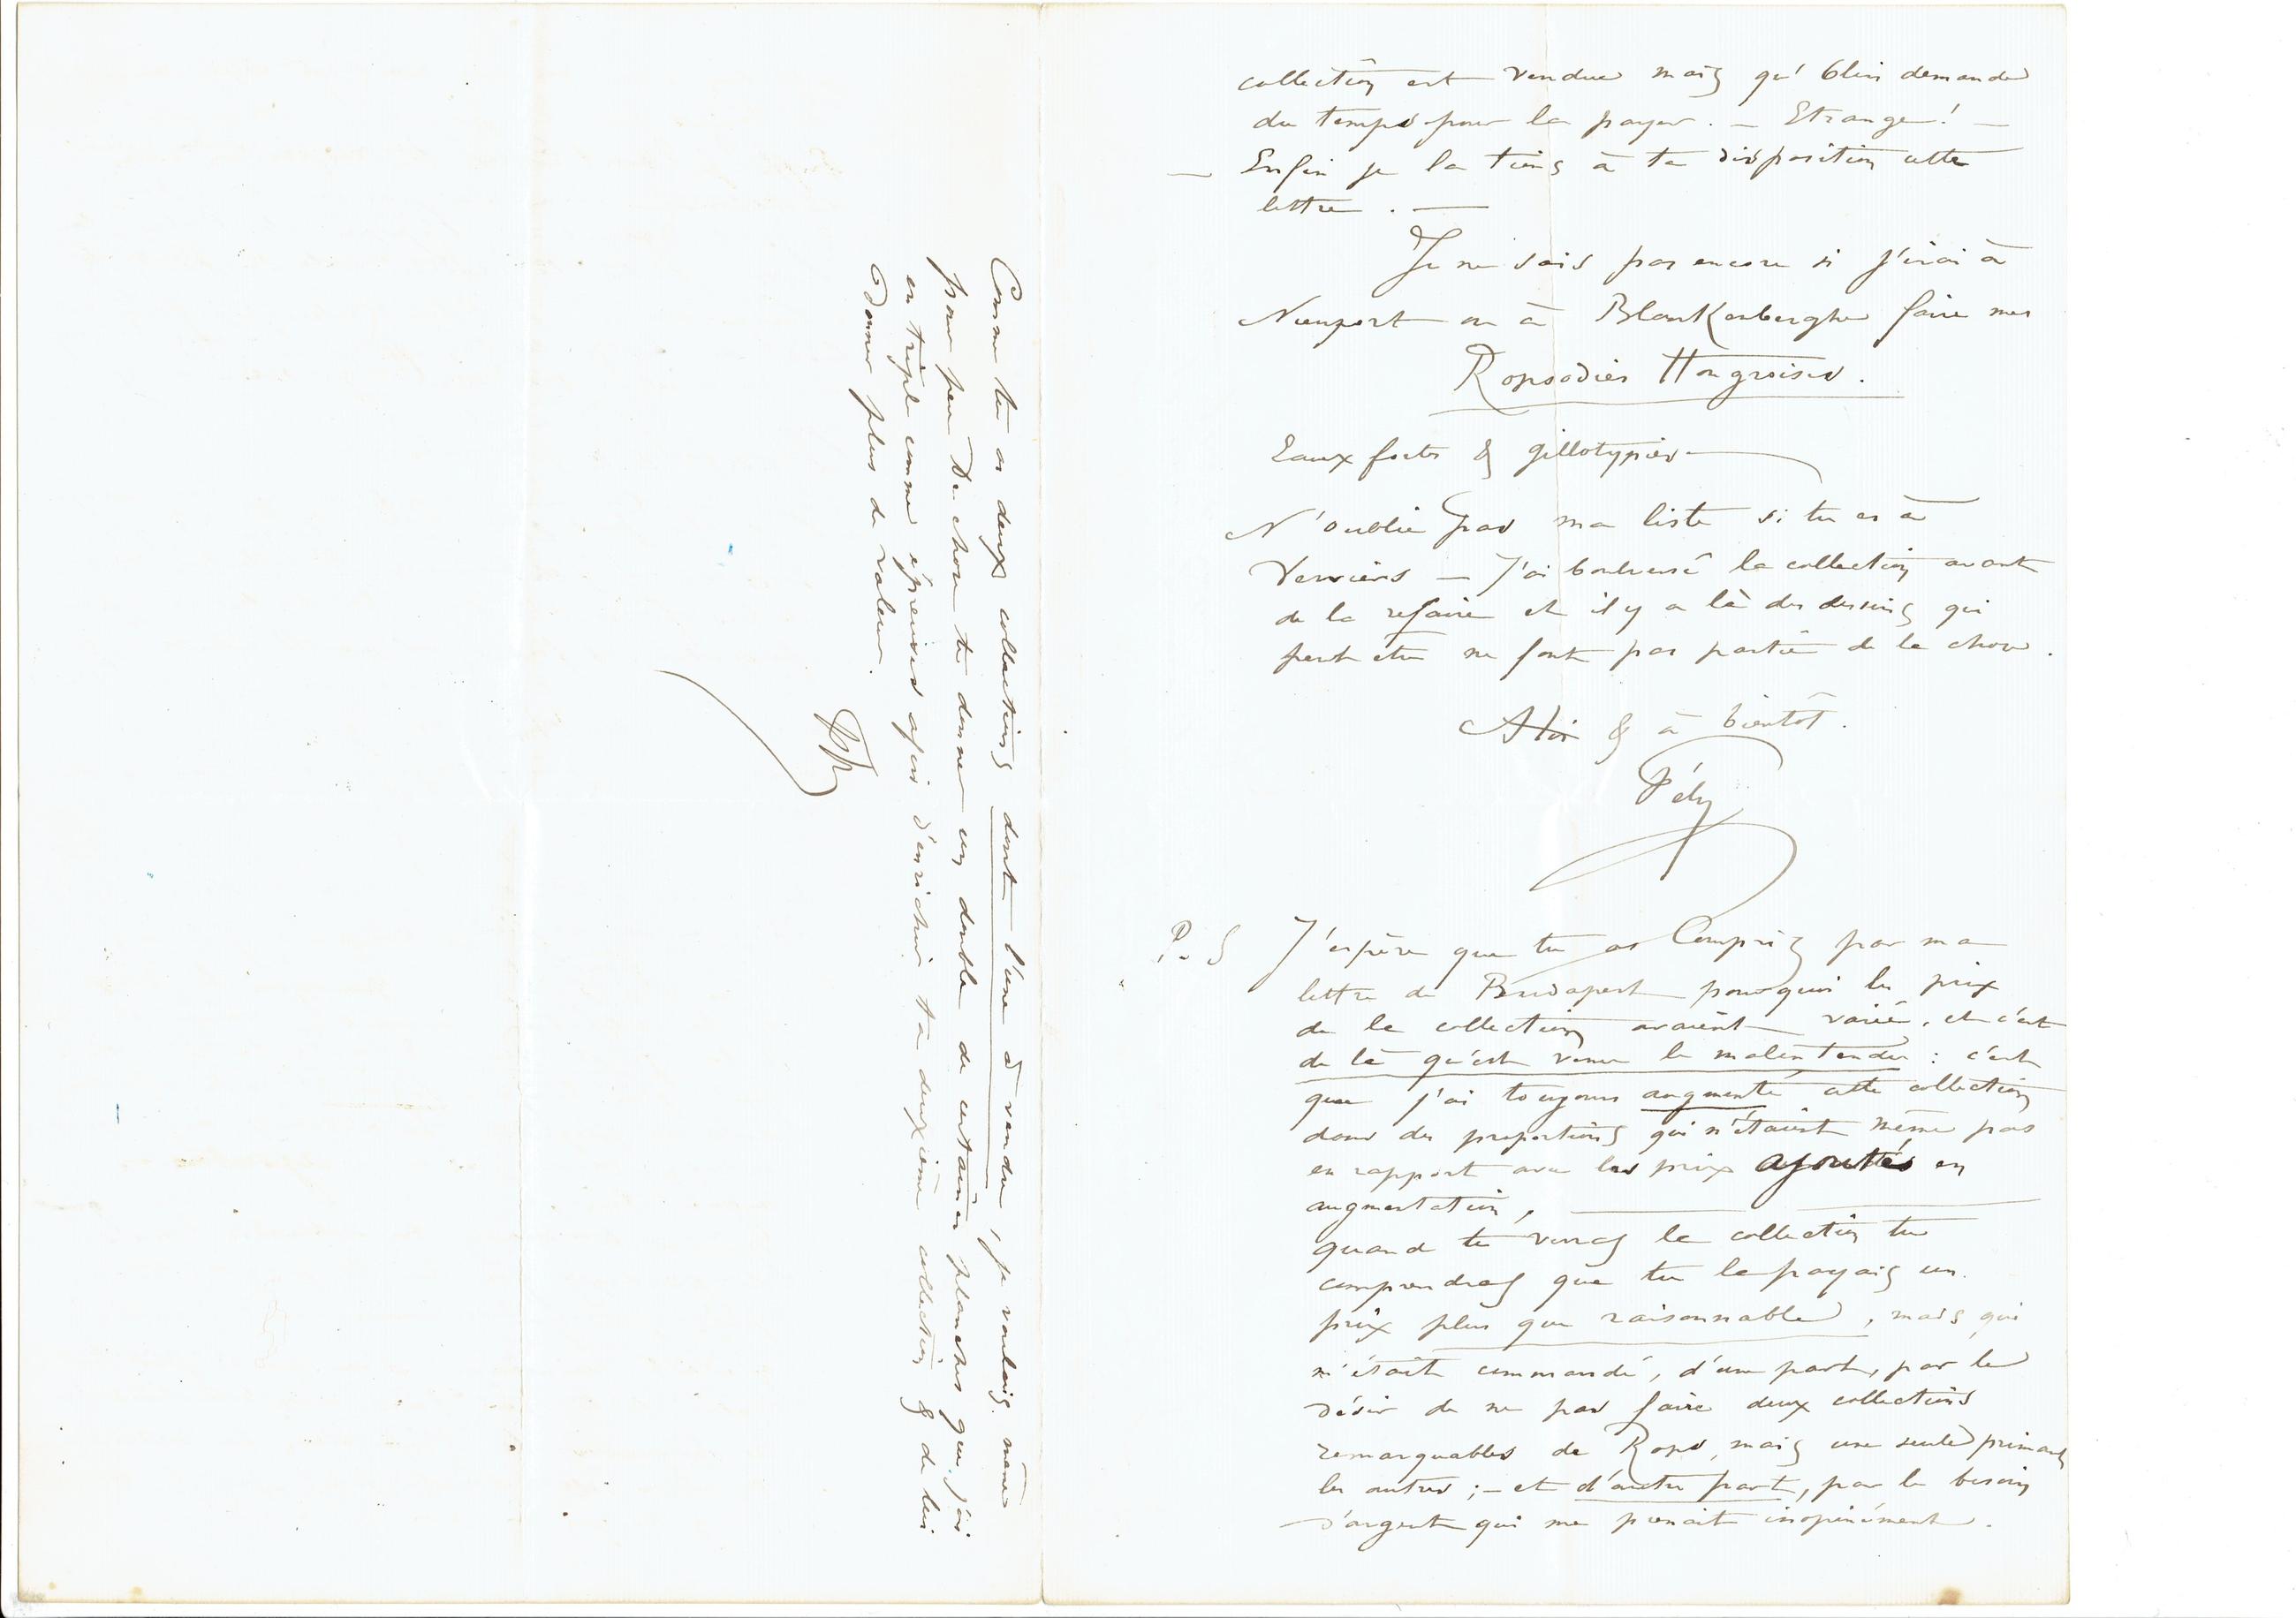 collection est vendue mais qu'Olin demande
du temps pour la payer. — Etrange! —
— Enfin je la tiens à ta disposition cette
lettre. —
Je ne sais pas encore si j'irai à
Nieuport ou à Blankenberghe faire mes
Ropsodies Hongroises.
Eaux fortes & gillotypies —
N'oublie pas ma liste si tu es à
Verviers — J'ai bouleversé la collection avant
de la refaire et il y a là des dessins qui
peut etre ne font pas partie de la chose.
A toi & à bientôt.
Fély
P.S J'espère que tu as compris par ma
lettre de Budapest pourquoi les prix
de la collection avaient varié, et c'est
de là qu'est venu le malentendu : c'est
que j'ai toujours augmenté cette collection
dans des proportions qui n'étaient même pas
en rapport avec les prix ajoutés en
augmentation, —
quand tu verras la collection tu
comprendras que tu la payais un
prix plus que raisonnable, mais qui
m'était commandé, d'une part, par le
désir de ne pas faire deux collections
remarquables de Rops, mais une seule primant
les autres ; — et d'autre part, par le besoin
d'argent qui me prenait inopinément.
Comme tu as deux collections dont l'une à vendre, je voulais même
pour peu de chose te donner un double de certaines planches que j'ai
en triple comme épreuves afin d'enrichir ta deuxième collection & de lui
donner plus de valeur.